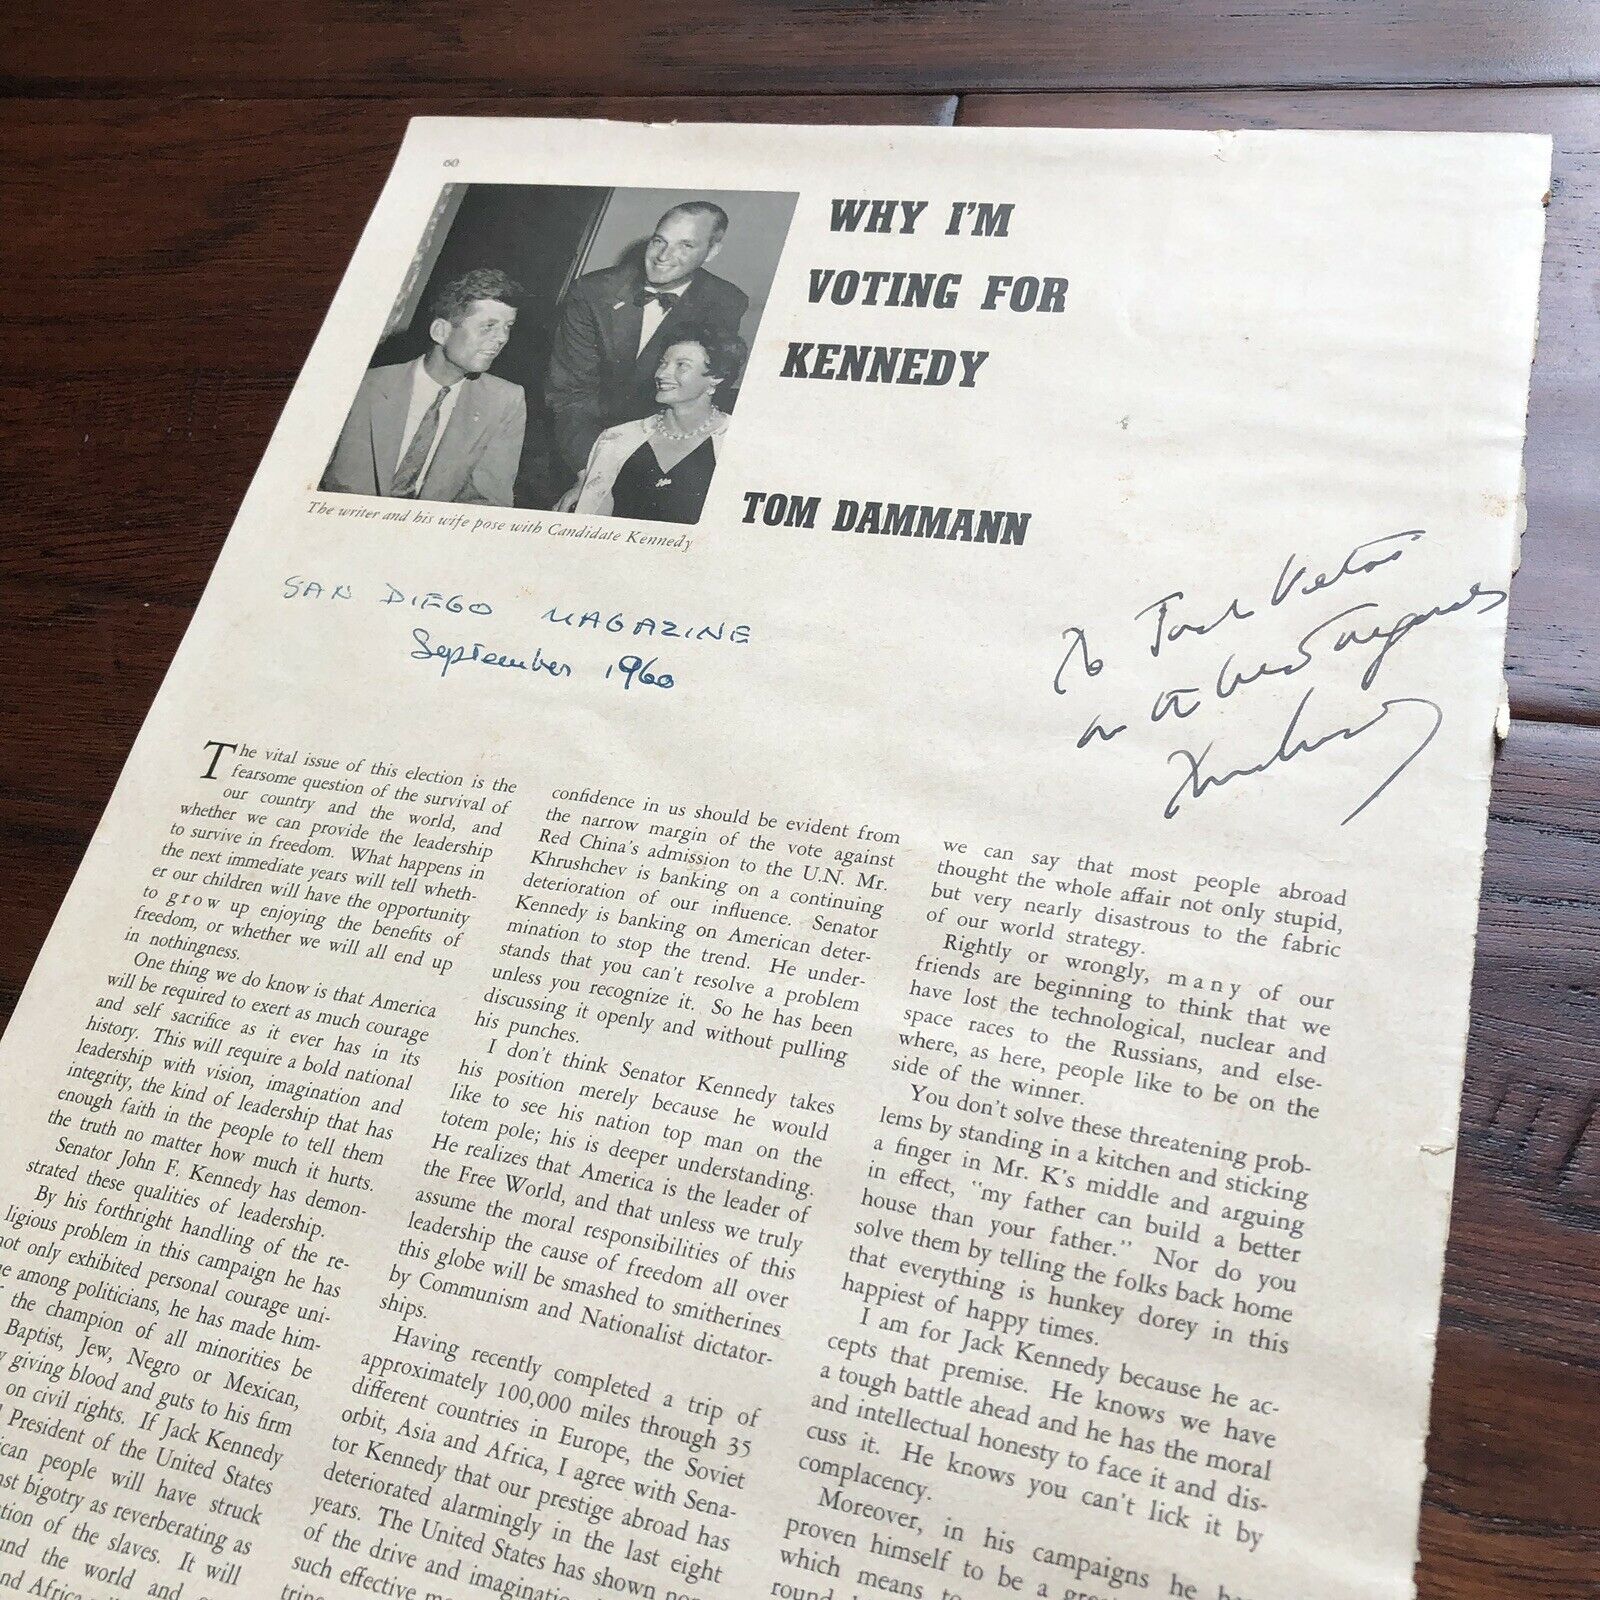 60
WHY I'M
VOTING FOR
KENNEDY
TOM DAMMANN
The writer and his wife pose with Candidate Kennedy
SAN DIEGO MAGAZINE
September 1960
To Jack
best regards
The vital issue of this election is the
fearsome question of the survival of
our country and the world, and
whether we can provide the leadership
to survive in freedom. What happens in
the next immediate years will tell wheth-
er our children will have the opportunity
to grow up enjoying the benefits of
freedom, or whether we will all end up
in nothingness.
One thing we do know is that America
will be required to exert as much courage
and self sacrifice as it ever has in its
history. This will require a bold national
leadership with vision, imagination and
integrity, the kind of leadership that has
enough faith in the people to tell them
the truth no matter how much it hurts.
Senator John F. Kennedy has demon-
strated these qualities of leadership.
By his forthright handling of the re-
ligious problem in this campaign he has
not only exhibited personal courage uni-
e among politicians, he has made him-
the champion of all minorities be
Baptist, Jew, Negro or Mexican,
y giving blood and guts to his firm
on civil rights. If Jack Kennedy
President of the United States
ican people will have struck
nst bigotry as reverberating as
tion of the slaves. It will
und the world and
nd Africa
confidence in us should be evident from
the narrow margin of the vote against
Red China's admission to the U.N. Mr.
Khrushchev is banking on a continuing
deterioration of our influence. Senator
Kennedy is banking on American deter-
mination to stop the trend. He under-
stands that you can't resolve a problem
unless you recognize it. So he has been
discussing it openly and without pulling
his punches.
I don't think Senator Kennedy takes
his position merely because he would
like to see his nation top man on the
totem pole; his is deeper understanding.
He realizes that America is the leader of
the Free World, and that unless we truly
assume the moral responsibilities of this
leadership the cause of freedom all over
this globe will be smashed to smitherines
by Communism and Nationalist dictator-
ships.
Having recently completed a trip of
approximately 100,000 miles through 35
different countries in Europe, the Soviet
orbit, Asia and Africa, I agree with Sena-
tor Kennedy that our prestige abroad has
deteriorated alarmingly in the last eight
years. The United States has shown
of the drive and
such effective
we can say that most people abroad
thought the whole affair not only stupid,
but very nearly disastrous to the fabric
of our world strategy.
Rightly or wrongly, many of our
friends are beginning to think that we
have lost the technological, nuclear and
space races to the Russians, and else-
where, as here, people like to be on the
side of the winner.
You don't solve these threatening prob-
lems by standing in a kitchen and sticking
a finger in Mr. K's middle and arguing
in effect, "my father can build a better
house than your father." Nor do you
solve them by telling the folks back home
that everything is hunkey dorey in this
happiest of happy times.
I am for Jack Kennedy because he ac-
cepts that premise. He knows we have
a tough battle ahead and he has the moral
and intellectual honesty to face it and dis-
cuss it. He knows you can't lick it by
complacency.
Moreover, in his campaigns he
proven himself to be a
which means
round